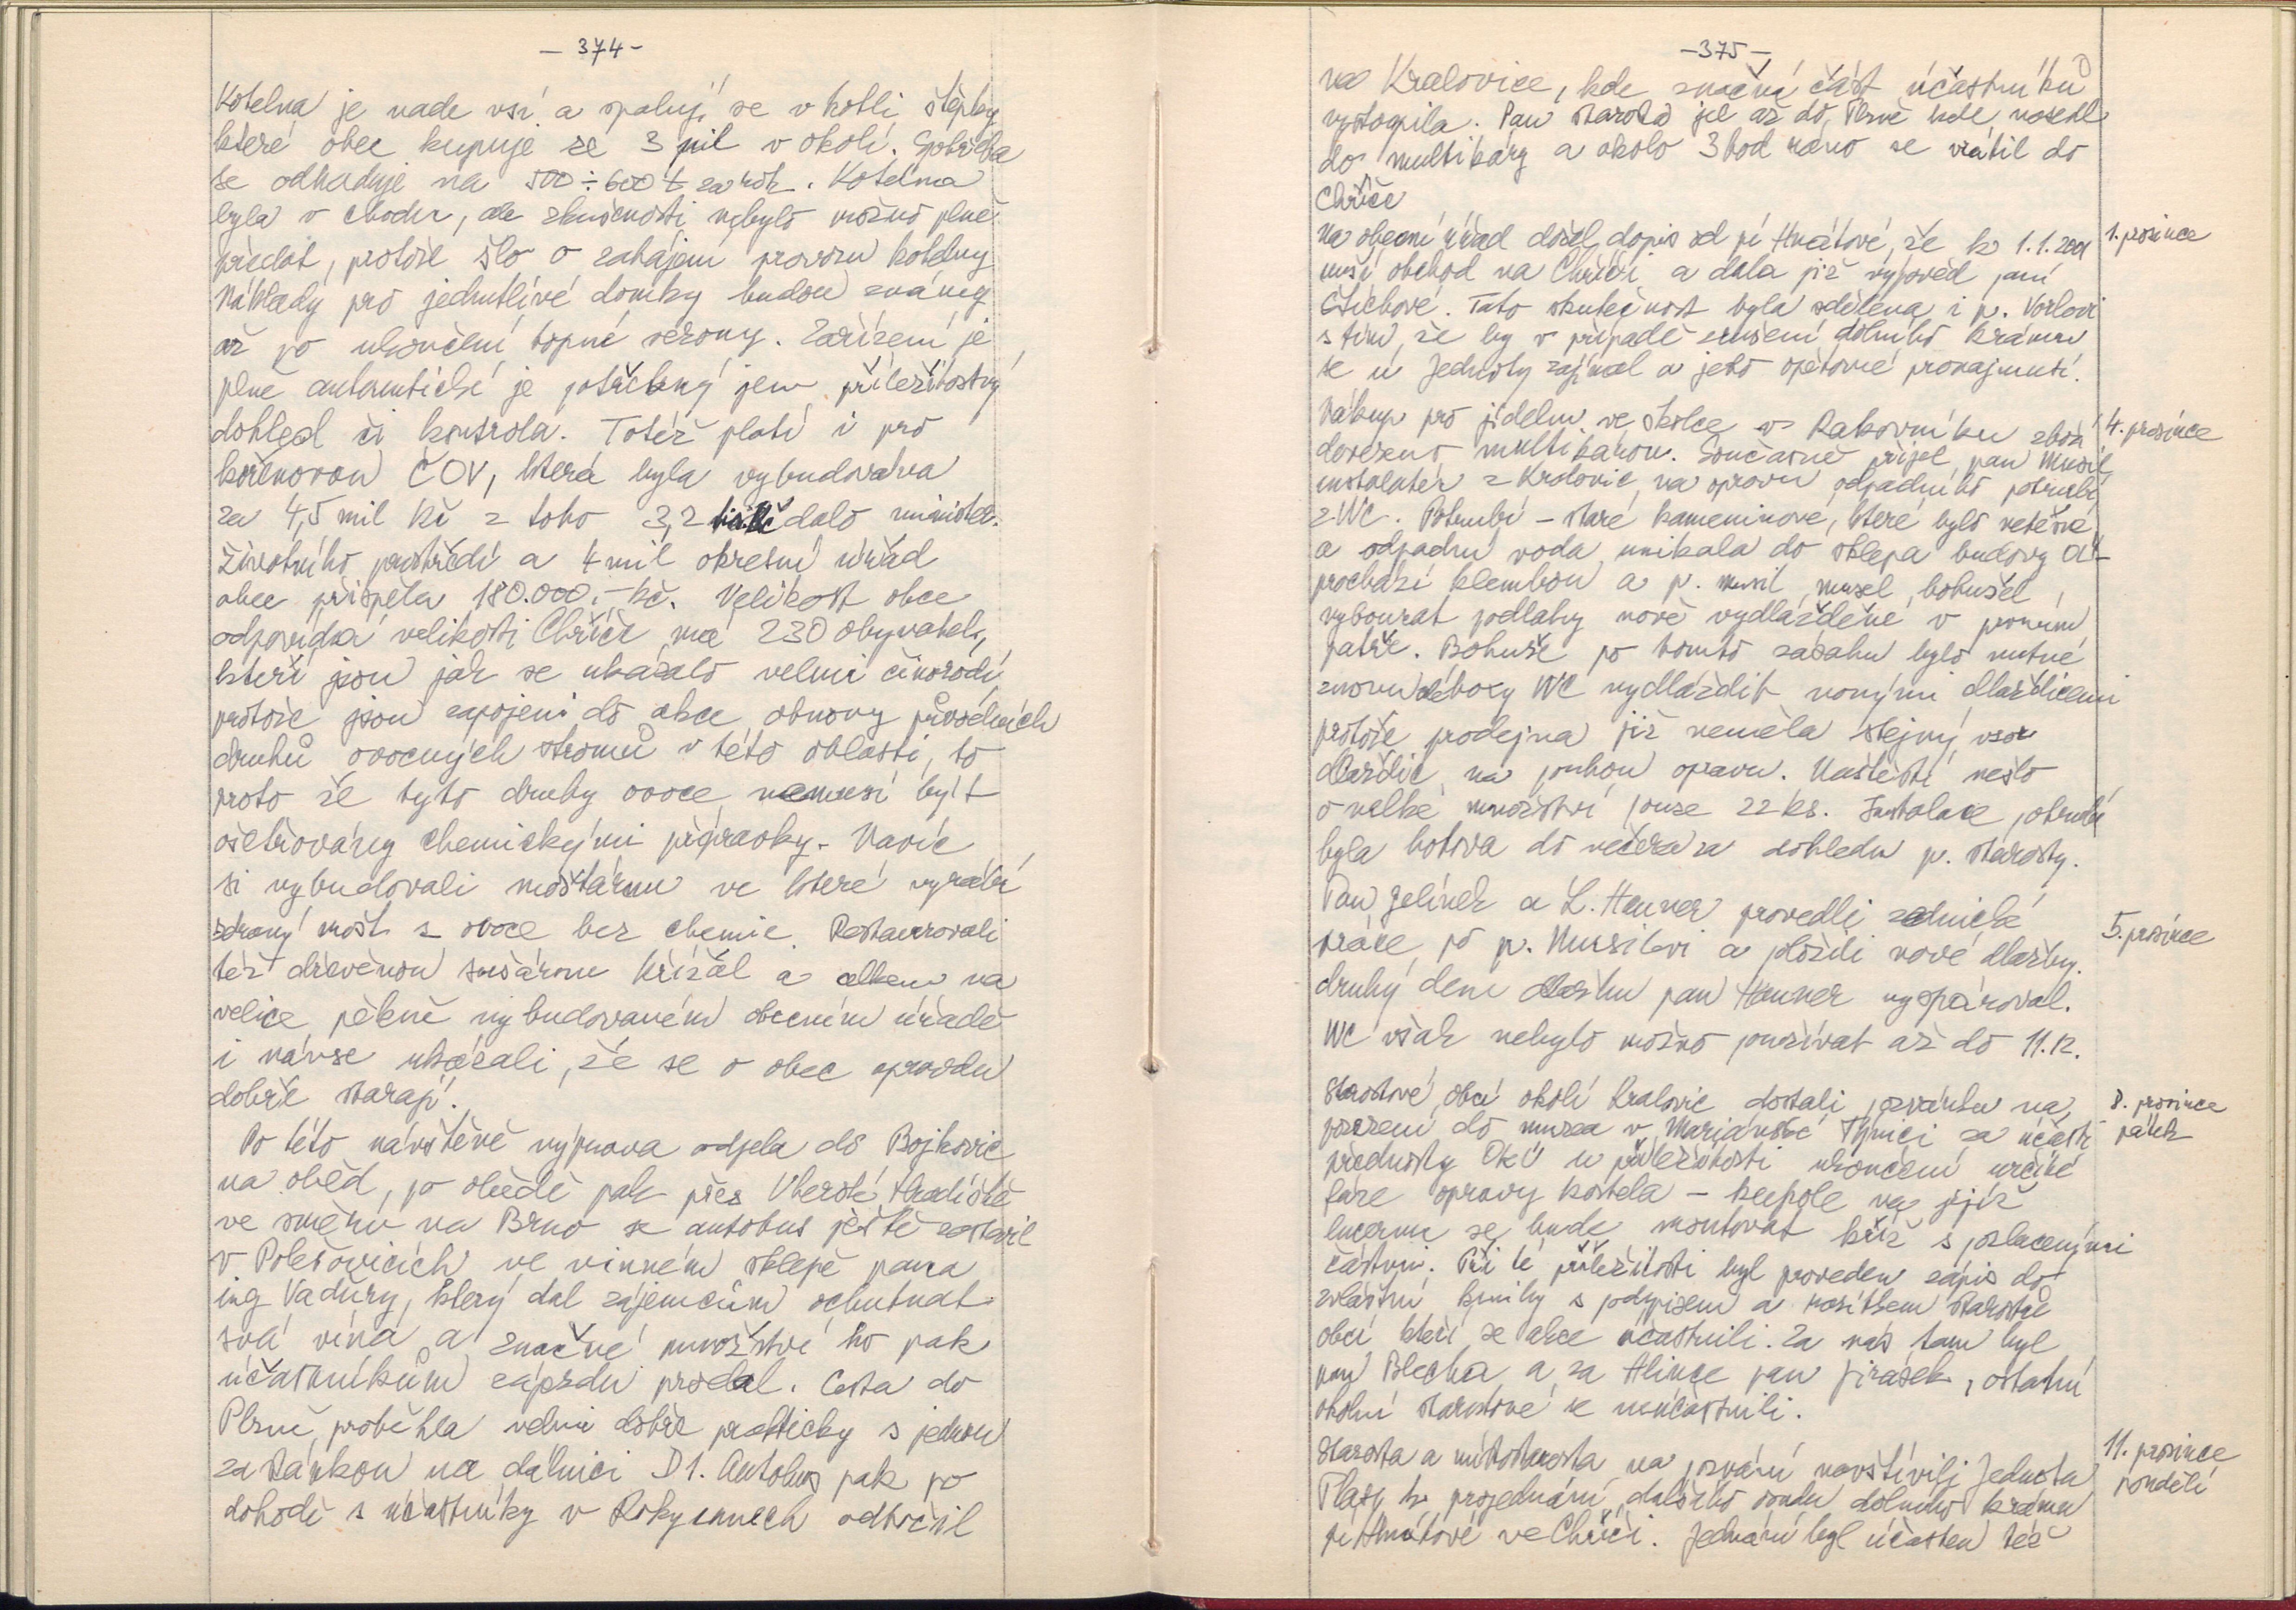 - 374 -
Kotelna je vade vsí a spalují se v kotli štěpky
které obec kupuje ze 3 pil v okolí. Spotřeba
se odhaduje na 500 ÷ 600 t za rok. Kotelna
byla v chodu, ale zkušenosti nebylo možno plně
předat, protože šlo o zahájení provozu kotelny
Náklady pro jednotlivé domky budou známy
až po ukončení topné sezony. Zařízení je
plně automatické je potřebný jen příležitostný
dohled či kontrola. Totéž platí i pro
kořenovou ČOV, která byla vybudována
za 4,5 mil Kč z toho 3,2 dalo minister.
životního prostředí a 4 mil okresní úřad
obec přispěla 180.000,- Kč. Velikost obce
odpovídá velikosti Chříče má 230 obyvatel,
kteří jsou jak se ukázalo velmi činorodí
protože jsou zapojeni do akce obnovy původních
druhů ovocných stromů v této oblasti, to
proto že tyto druhy ovoce nemusí být
ošetřovány chemickými přípravky. Navíc
si vybudovali moštárnu ve které vyrábí
zdravý mošt z ovoce bez chemie. Restaurovali
též dřevěnou sušárnu křížal a celkem na
velice pěkně vybudovaném obecním úřadě
i návse ukázali, že se o obec opravdu
dobře starají.
Po této návštěvě výprava odjela do Bojkovic
na oběd, po obědě pak přes Uherské Hradiště
ve směru na Brno se autobus ještě zastavil
v Polešovicích ve vinném sklepě pana
ing Vaďury, který dal zájemcům ochutnat
svá vína a značné množství ho pak
účastníkům zájezdu prodal. Cesta do
Plzně proběhla velmi dobře prakticky s jednou
zastávkou na dálnici D1. Autobus pak po
dohodě s účastníky v Rokycanech odbočil
- 375 -
na Kralovice, kde značná část účastníků
vystoupila. Pan starosta jel až do Plzně kde nasedl
do multikáry a okolo 3 hod ráno se vrátil do
Chříče
Na obecní úřad došel dopis od pí Hnátové, že k 1.1.2001
ruší obchod na Chříči a dala již výpověď paní
Čtichové. Tato skutečnost byla sdělena i p. Vorlovi
s tím, že by v případě zrušení dolního krámu
se u Jednoty zajímal o jeho opětovné pronajmutí.
1. prosince
Nákup pro jídelnu ve školce v Rakovníku zboží
dovezeno multikárou. Současně přijel pan Musil
instalatér z Kralovic na opravu odpadního potrubí
z WC. Potrubí - staré kameninové, které bylo netěsné
a odpadní voda unikala do sklepa budovy OÚ
prochází klembou a p. Musil musel bohužel
vybourat podlahy nově vydlážděné v prvním
patře. Bohužel po tomto zásahu bylo nutné
znovu oboxy WC vydláždit novými dlaždicemi
protože prodejna již neměla stejný vzor
dlaždic na pouhou opravu. Naštěstí nešlo
o velké množství pouze 22 ks. Instalace potrubí
byla hotova do večera za dohledu p. starosty.
4. prosince
Pan Jelínek a L. Hauner provedli zednické
práce po p. Musilovi a položili nové dlažby.
druhý den dlažbu pan Hauner vyspároval.
WC však nebylo možno používat až do 11.12.
5. prosince
Starostové obcí okolí Kralovic dostali pozvánku na
pozvání do muzea v Mariánské Týnici za účasti
přednosty OkÚ u příležitosti ukončení určité
fáze opravy kostela - kupole na jejíž
lucernu se bude montovat kříž s pozlacenými
částmi. Při té příležitosti byl proveden zápis do
zvláštní knihy s podpisem a razítkem starostů
obcí kteří se akce účastnili. Za nás tam byl
pan Blecha a za Hlince pan Jirásek, ostatní
okolní starostové se neúčastnili.
8. prosince
pátek
Starosta a místostarosta na pozvání navštívili Jednota
Plasy k projednání dalšího osudu dolního krámu
pí Hnátové ve Chříči. Jednání byl účasten též
11. prosince
pondělí